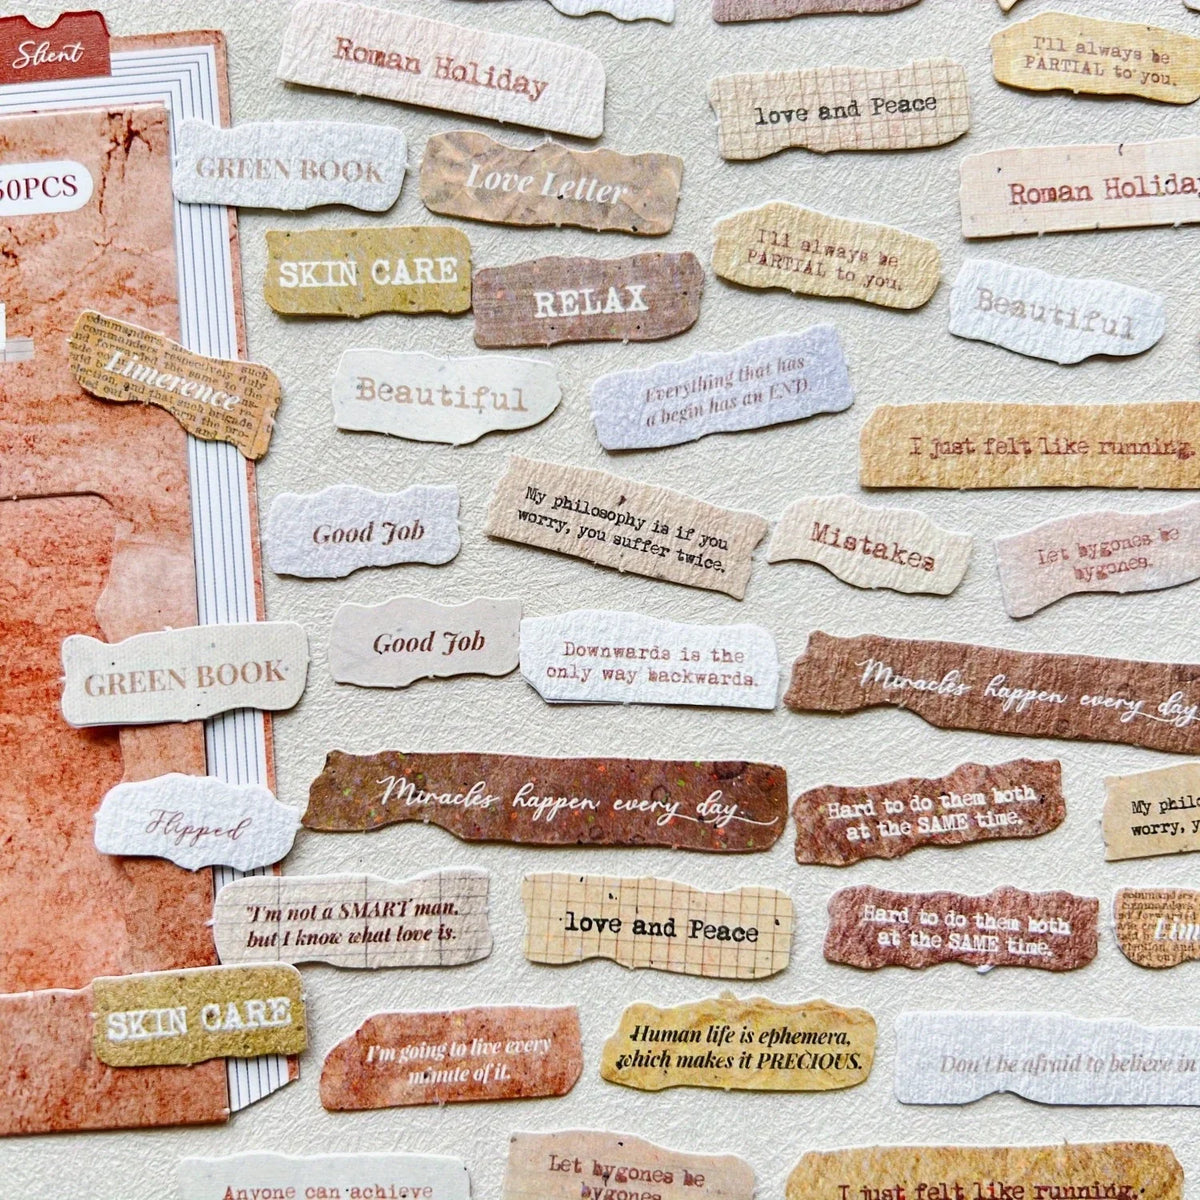 Slient
50PCS
Roman Holiday
love and Peace
I'll always be
PARTIAL to you.
GREEN BOOK
Love Letter
Roman Holiday
SKIN CARE
RELAX
I'll always be
PARTIAL to you.
Beautiful
Limerence
Beautiful
Everything that has
a begin has an END.
I just felt like running.
Good Job
My philosophy is if you
worry, you suffer twice.
Mistakes
Let bygones be
bygones.
GREEN BOOK
Good Job
Downwards is the
only way backwards.
Miracles happen every day.
Flipped
Miracles happen every day.
Hard to do them both
at the SAME time.
My philo
worry, y
"I'm not a SMART man.
but I know what love is.
love and Peace
Hard to do them both
at the SAME time.
Lim
SKIN CARE
I'm going to live every
minute of it.
Human life is ephemera,
which makes it PRECIOUS.
Don't be afraid to believe in
Anyone can achieve
Let bygones be
bygones.
I just felt like running.